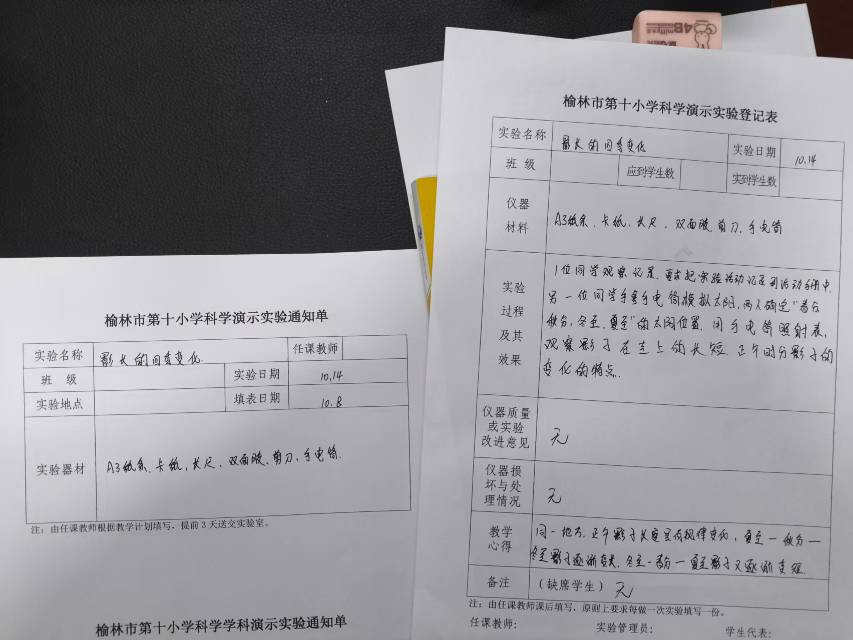 4B
榆林市第十小学科学演示实验通知单
实验名称 影长的四季变化 任课教师
班 级 实验日期 10.14
实验地点 填表日期 10.8
实验器材 A3纸条、卡纸、长尺、双面胶、剪刀、手电筒.
注：由任课教师根据教学计划填写，提前3天送交实验室。
榆林市第十小学科学学科演示实验通知单
榆林市第十小学科学演示实验登记表
实验名称 影长的四季变化 实验日期 10.14
班 级 应到学生数 实到学生数
仪器材料 A3纸条、卡纸、长尺、双面胶、剪刀、手电筒
实验过程及其效果
1位同学观察记录、要求把实验活动记在到活动手册中.
另一位同学手拿手电筒模拟太阳，两人确定“春分
秋分、冬至、夏至”的太阳位置、用手电筒照射表，
观察影子在圭上的长短、正午时分影子的
变化的特点.
仪器质量或实验改进意见 无
仪器损坏与处理情况 无
教学心得
同一地方、正午影子长度呈有规律变化，夏至—秋分—
冬至影子逐渐变长、冬至—春分—夏至影子又逐渐变短.
备注 （缺席学生） 无
注：由任课教师课后填写，原则上要求每做一次实验填写一份。
任课教师： 实验管理员： 学生代表：